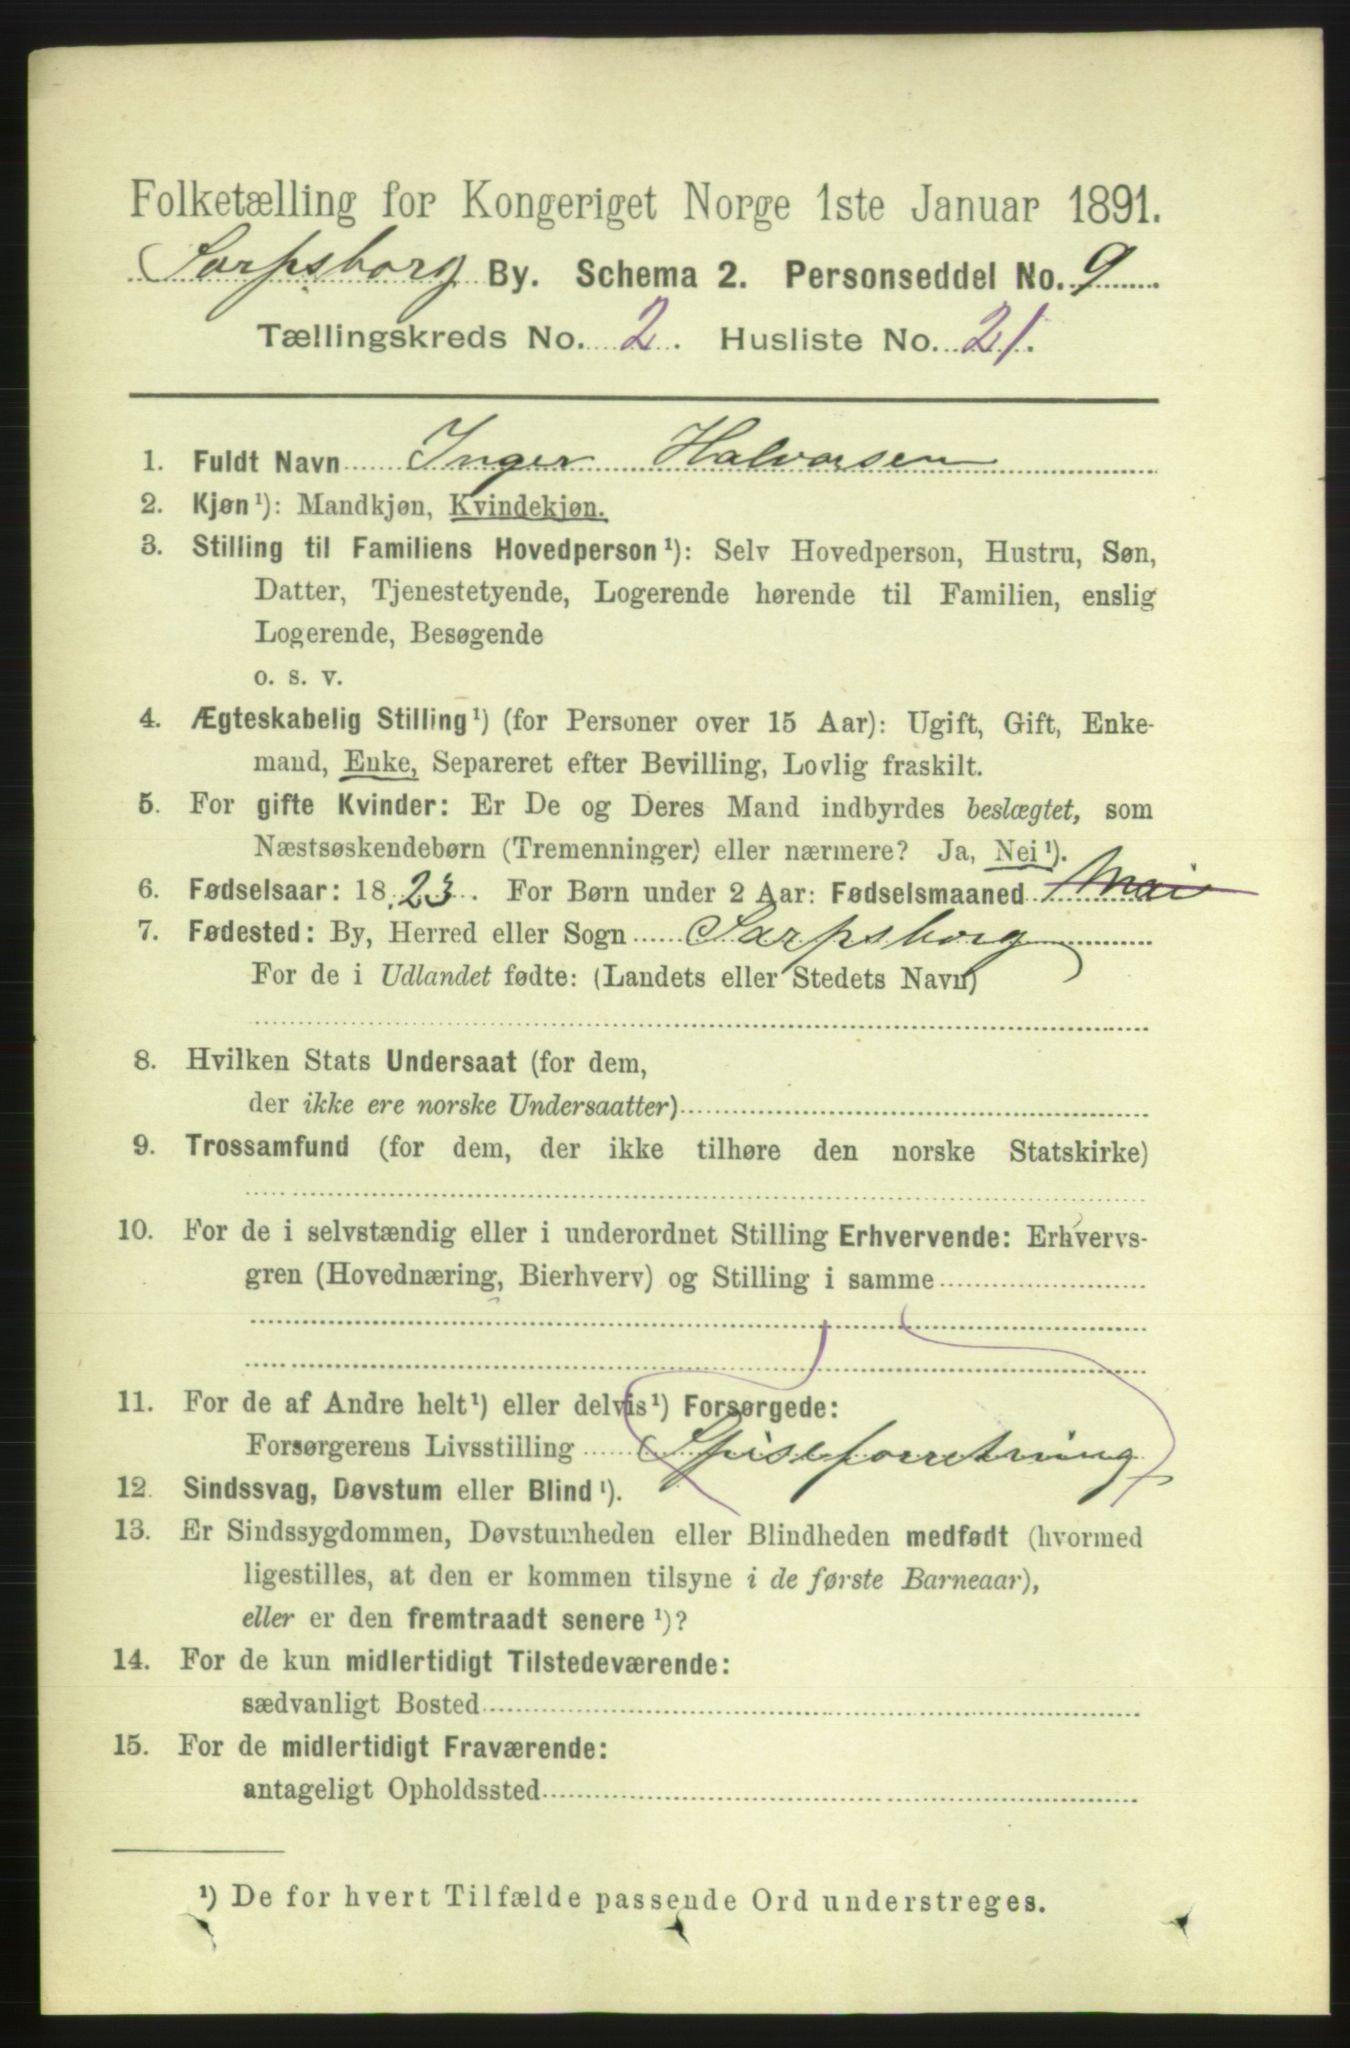 Folketælling for Kongeriget Norge 1ste Januar 1891.
Sarpsborg By. Schema 2. Personseddel No. 9
Tællingskreds No. 2. Husliste No. 21.
1. Fuldt Navn Inger Halvorsen
2. Kjøn¹): Mandkjøn, Kvindekjøn.
3. Stilling til Familiens Hovedperson¹): Selv Hovedperson, Hustru, Søn,
Datter, Tjenestetyende, Logerende hørende til Familien, enslig
Logerende, Besøgende
o. s. v.
4. Ægteskabelig Stilling¹) (for Personer over 15 Aar): Ugift, Gift, Enke-
mand, Enke, Separeret efter Bevilling, Lovlig fraskilt.
5. For gifte Kvinder: Er De og Deres Mand indbyrdes beslægtet, som
Næstsøskendebørn (Tremenninger) eller nærmere? Ja, Nei¹).
6. Fødselsaar: 1823. For Børn under 2 Aar: Fødselsmaaned Mai
7. Fødested: By, Herred eller Sogn Sarpsborg
For de i Udlandet fødte: (Landets eller Stedets Navn)
8. Hvilken Stats Undersaat (for dem,
der ikke ere norske Undersaatter)
9. Trossamfund (for dem, der ikke tilhøre den norske Statskirke)
10. For de i selvstændig eller i underordnet Stilling Erhvervende: Erhvervs-
gren (Hovednæring, Bierhverv) og Stilling i samme
11. For de af Andre helt¹) eller delvis¹) Forsørgede:
Forsørgerens Livsstilling Spiseforretning
12. Sindssvag, Døvstum eller Blind¹).
13. Er Sindssygdommen, Døvstumheden eller Blindheden medfødt (hvormed
ligestilles, at den er kommen tilsyne i de første Barneaar),
eller er den fremtraadt senere¹)?
14. For de kun midlertidigt Tilstedeværende:
sædvanligt Bosted
15. For de midlertidigt Fraværende:
antageligt Opholdssted
¹) De for hvert Tilfælde passende Ord understreges.